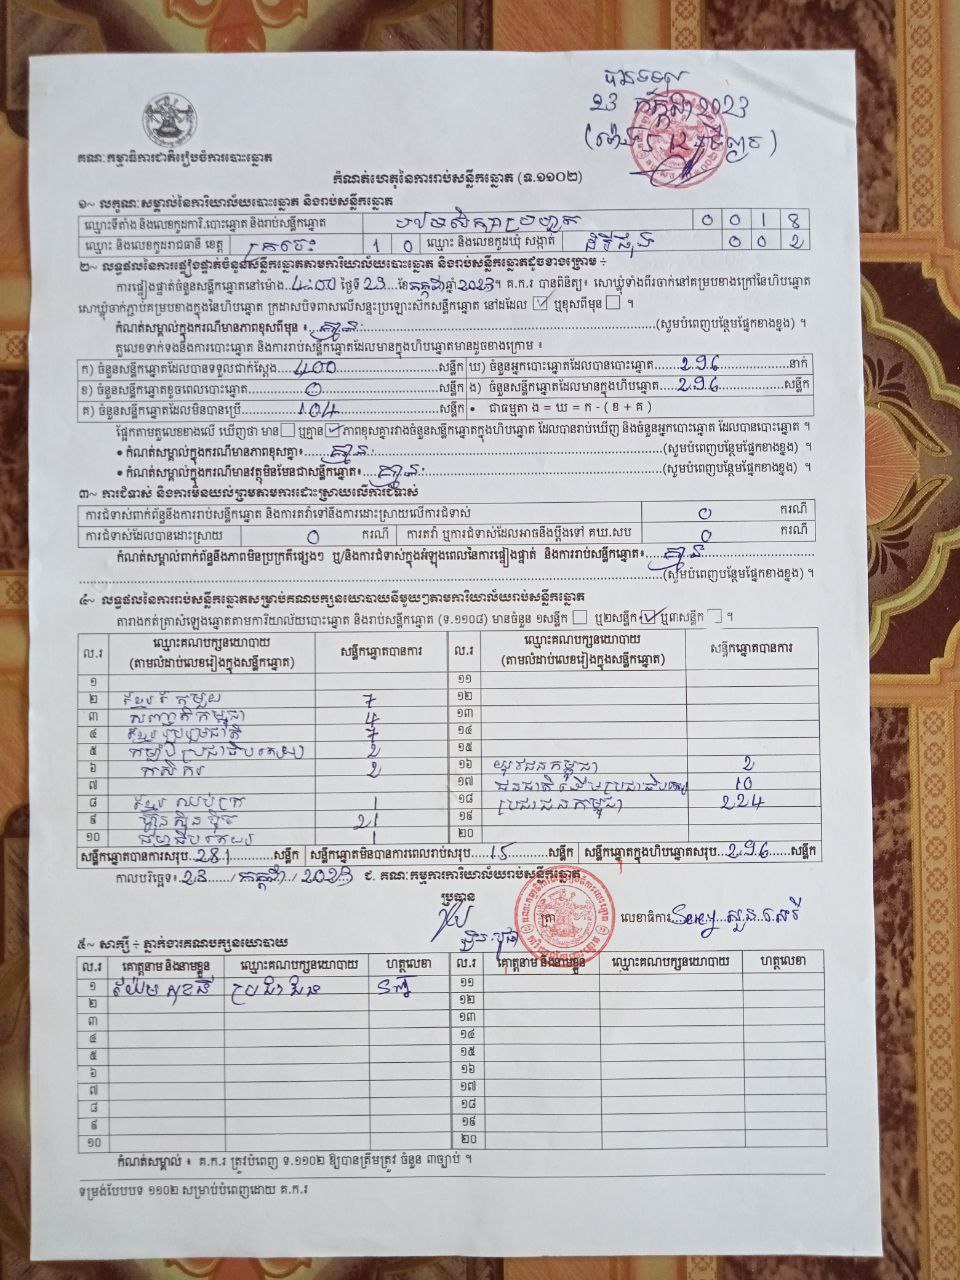 បានទទួល
23 កក្កដា 2023
គណៈកម្មាធិការជាតិរៀបចំការបោះឆ្នោត
កំណត់ហេតុនៃការរាប់សន្លឹកឆ្នោត (ទ.១១០២)
១~ លក្ខណៈសម្គាល់នៃការិយាល័យបោះឆ្នោត និងរាប់សន្លឹកឆ្នោត
ឈ្មោះទីតាំង និងលេខកូដការិ.បោះឆ្នោត និងរាប់សន្លឹកឆ្នោត 0 0 1 8
ឈ្មោះ និងលេខកូដរាជធានី ខេត្ត ក្រចេះ 1 0 ឈ្មោះ និងលេខកូដឃុំ សង្កាត់ 0 0 2
២~ លទ្ធផលនៃការផ្ទៀងផ្ទាត់ចំនួនសន្លឹកឆ្នោតតាមការិយាល័យបោះឆ្នោត និងរាប់សន្លឹកឆ្នោតដូចខាងក្រោម ÷
ការផ្ទៀងផ្ទាត់ចំនួនសន្លឹកឆ្នោតនៅម៉ោង..4:00 ថ្ងៃទី 23...ខែកក្កដាឆ្នាំ2023។ គ.ក.រ បានពិនិត្យ៖ សោឃ្លុំទាំងពីរចាក់នៅគម្របខាងក្រៅនៃហិបឆ្នោត
សោឃ្លុំចាក់ភ្ជាប់គម្របខាងក្នុងនៃហិបឆ្នោត ក្រដាសបិទពាសលើសន្ទះប្រឡោះសិកសន្លឹកឆ្នោត នៅដដែល ☑ ឬខុសពីមុន ☐ ។
កំណត់សម្គាល់ក្នុងករណីមានភាពខុសពីមុន ៖ គ្មាន (សូមបំពេញបន្ថែមផ្នែកខាងខ្នង) ។
តួលេខទាក់ទងនឹងការបោះឆ្នោត និងការរាប់សន្លឹកឆ្នោតដែលមានក្នុងហិបឆ្នោតមានដូចខាងក្រោម ៖
ក) ចំនួនសន្លឹកឆ្នោតដែលបានទទួលជាក់ស្តែង 400 សន្លឹក ឃ) ចំនួនអ្នកបោះឆ្នោតដែលបានបោះឆ្នោត 296 នាក់
ខ) ចំនួនសន្លឹកឆ្នោតខូចពេលបោះឆ្នោត 0 សន្លឹក ង) ចំនួនសន្លឹកឆ្នោតដែលមានក្នុងហិបឆ្នោត 296 សន្លឹក
គ) ចំនួនសន្លឹកឆ្នោតដែលមិនបានប្រើ 104 សន្លឹក • ជាធម្មតា ង = ឃ = ក - ( ខ + គ )
ផ្អែកតាមតួលេខខាងលើ ឃើញថា មាន☐ ឬគ្មាន☑ ភាពខុសគ្នារវាងចំនួនសន្លឹកឆ្នោតក្នុងហិបឆ្នោត ដែលបានរាប់ឃើញ និងចំនួនអ្នកបោះឆ្នោត ដែលបានបោះឆ្នោត ។
• កំណត់សម្គាល់ក្នុងករណីមានភាពខុសគ្នា៖ គ្មាន (សូមបំពេញបន្ថែមផ្នែកខាងខ្នង) ។
• កំណត់សម្គាល់ក្នុងករណីមានវត្ថុមិនមែនជាសន្លឹកឆ្នោត៖ គ្មាន (សូមបំពេញបន្ថែមផ្នែកខាងខ្នង) ។
៣~ ការជំទាស់ និងការមិនយល់ព្រមតាមការដោះស្រាយលើការជំទាស់
ការជំទាស់ពាក់ព័ន្ធនឹងការរាប់សន្លឹកឆ្នោត និងការតវ៉ាទៅនឹងការដោះស្រាយលើការជំទាស់ 0 ករណី
ការជំទាស់ដែលបានដោះស្រាយ 0 ករណី ការតវ៉ា ឬការជំទាស់ដែលអាចនឹងប្តឹងទៅ គឃ.សប 0 ករណី
កំណត់សម្គាល់ពាក់ព័ន្ធនឹងភាពមិនប្រក្រតីផ្សេងៗ ឬ/និងការជំទាស់ក្នុងអំឡុងពេលនៃការផ្ទៀងផ្ទាត់ និងការរាប់សន្លឹកឆ្នោត៖ គ្មាន
(សូមបំពេញបន្ថែមផ្នែកខាងខ្នង) ។
៤~ លទ្ធផលនៃការរាប់សន្លឹកឆ្នោតសម្រាប់គណបក្សនយោបាយនីមួយៗតាមការិយាល័យរាប់សន្លឹកឆ្នោត
តារាងកត់ត្រាសំឡេងឆ្នោតតាមការិយាល័យបោះឆ្នោត និងរាប់សន្លឹកឆ្នោត (ទ.១១០៨) មានចំនួន ១សន្លឹក ☐ ឬ២សន្លឹក ☑ ឬ៣សន្លឹក ☐ ។
ល.រ ឈ្មោះគណបក្សនយោបាយ សន្លឹកឆ្នោតបានការ ល.រ ឈ្មោះគណបក្សនយោបាយ សន្លឹកឆ្នោតបានការ
(តាមលំដាប់លេខរៀងក្នុងសន្លឹកឆ្នោត) (តាមលំដាប់លេខរៀងក្នុងសន្លឹកឆ្នោត)
១ ១១
២ ខ្មែររួបរួម 7 ១២
៣ សញ្ជាតិកម្ពុជា 4 ១៣
៤ ខ្មែររួបរួមជាតិ 7 ១៤
៥ កម្លាំងប្រជាធិបតេយ្យ 2 ១៥
៦ កសិករ 2 ១៦ យុវជនកម្ពុជា 2
៧ ១៧ ជនជាតិដើមប្រជាធិបតេយ្យ 10
៨ ខ្មែរឈប់ក្រ 1 ១៨ ប្រជាជនកម្ពុជា 224
៩ ហ៊្វុនស៊ិនប៉ិច 21 ១៩
១០ 1 ២០
សន្លឹកឆ្នោតបានការសរុប..281...សន្លឹក សន្លឹកឆ្នោតមិនបានការពេលរាប់សរុប...15...សន្លឹក សន្លឹកឆ្នោតក្នុងហិបឆ្នោតសរុប..296...សន្លឹក
កាលបរិច្ឆេទ៖..23..../..កក្កដា../..2023 ជ. គណៈកម្មការការិយាល័យរាប់សន្លឹកឆ្នោត
ប្រធាន
ត្រា លេខាធិការ
៥~ សាក្សី ÷ ភ្នាក់ងារគណបក្សនយោបាយ
ល.រ គោត្តនាម និងនាមខ្លួន ឈ្មោះគណបក្សនយោបាយ ហត្ថលេខា ល.រ គោត្តនាម និងនាមខ្លួន ឈ្មោះគណបក្សនយោបាយ ហត្ថលេខា
១ ប្រជាជន ១១
២ ១២
៣ ១៣
៤ ១៤
៥ ១៥
៦ ១៦
៧ ១៧
៨ ១៨
៩ ១៩
១០ ២០
កំណត់សម្គាល់ ៖ គ.ក.រ ត្រូវបំពេញ ទ.១១០២ ឱ្យបានត្រឹមត្រូវ ចំនួន ៣ច្បាប់ ។
ទម្រង់បែបបទ ១១០២ សម្រាប់បំពេញដោយ គ.ក.រ